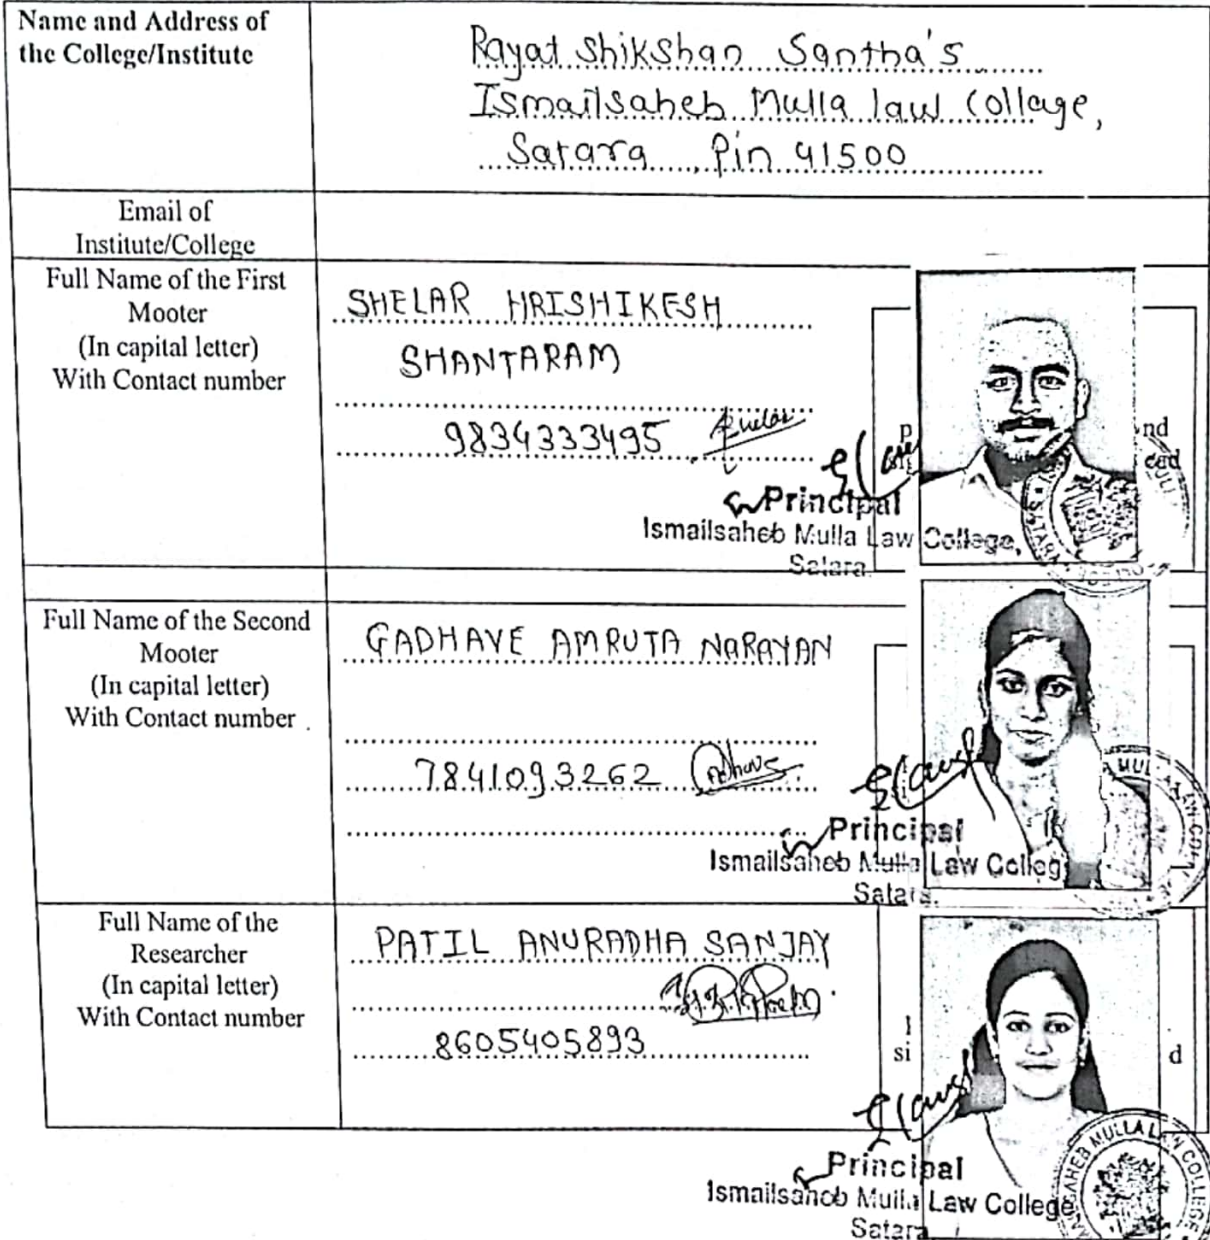 Name and Address of
the College/Institute
Rayat Shikshan Santha's
Ismailsaheb Mulla law Collage,
Satara Pin 41500
Email of
Institute/College
Full Name of the First
Mooter
(In capital letter)
With Contact number
SHELAR HRISHIKESH
SHANTARAM
9834333495 Shelar
nd
Principal
Ismailsaheb Mulla Law College,
Satara.
Full Name of the Second
Mooter
(In capital letter)
With Contact number
GADHAVE AMRUTA NARAYAN
7841093262
Principal
Ismailsaheb Mulla Law Colleg
Satara.
Full Name of the
Researcher
(In capital letter)
With Contact number
PATIL ANURADHA SANJAY
8605405893
si
d
Principal
Ismailsaheb Mulla Law College
Satara
MULLA LAW COLLEGE